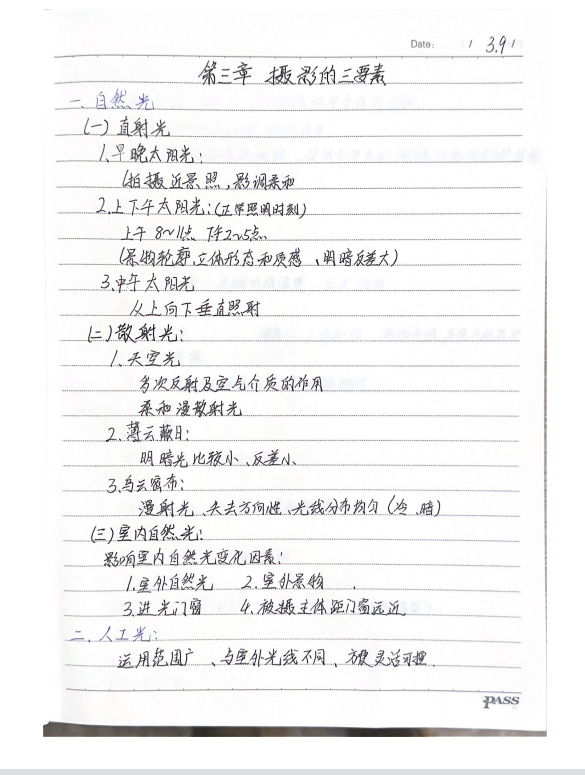 Date: / 3.9 /
第三章 摄影的三要素
一、自然光
(一)直射光
1.早晚太阳光:
(拍摄近景照,影调柔和
2.上下午太阳光:(正常照明时刻)
上午8~11点 下午2~5点
(景物轮廓、立体形态和质感、明暗反差大)
3.中午太阳光
从上向下垂直照射
(二)散射光:
1.天空光
多次反射及空气介质的作用
柔和漫散射光
2.薄云蔽日:
明暗光比较小、反差小、
3.乌云密布:
漫射光、失去方向性、光线分布均匀(冷、暗)
(三)室内自然光:
影响室内自然光变化因素:
1.室外自然光 2.室外景物
3.进光门窗 4.被摄主体距门窗远近
二、人工光:
运用范围广、与室外光线不同、方便灵活可控.
PASS